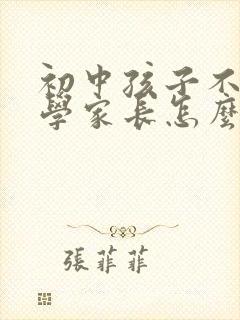 初中孩子不
學家長怎麼
張菲菲